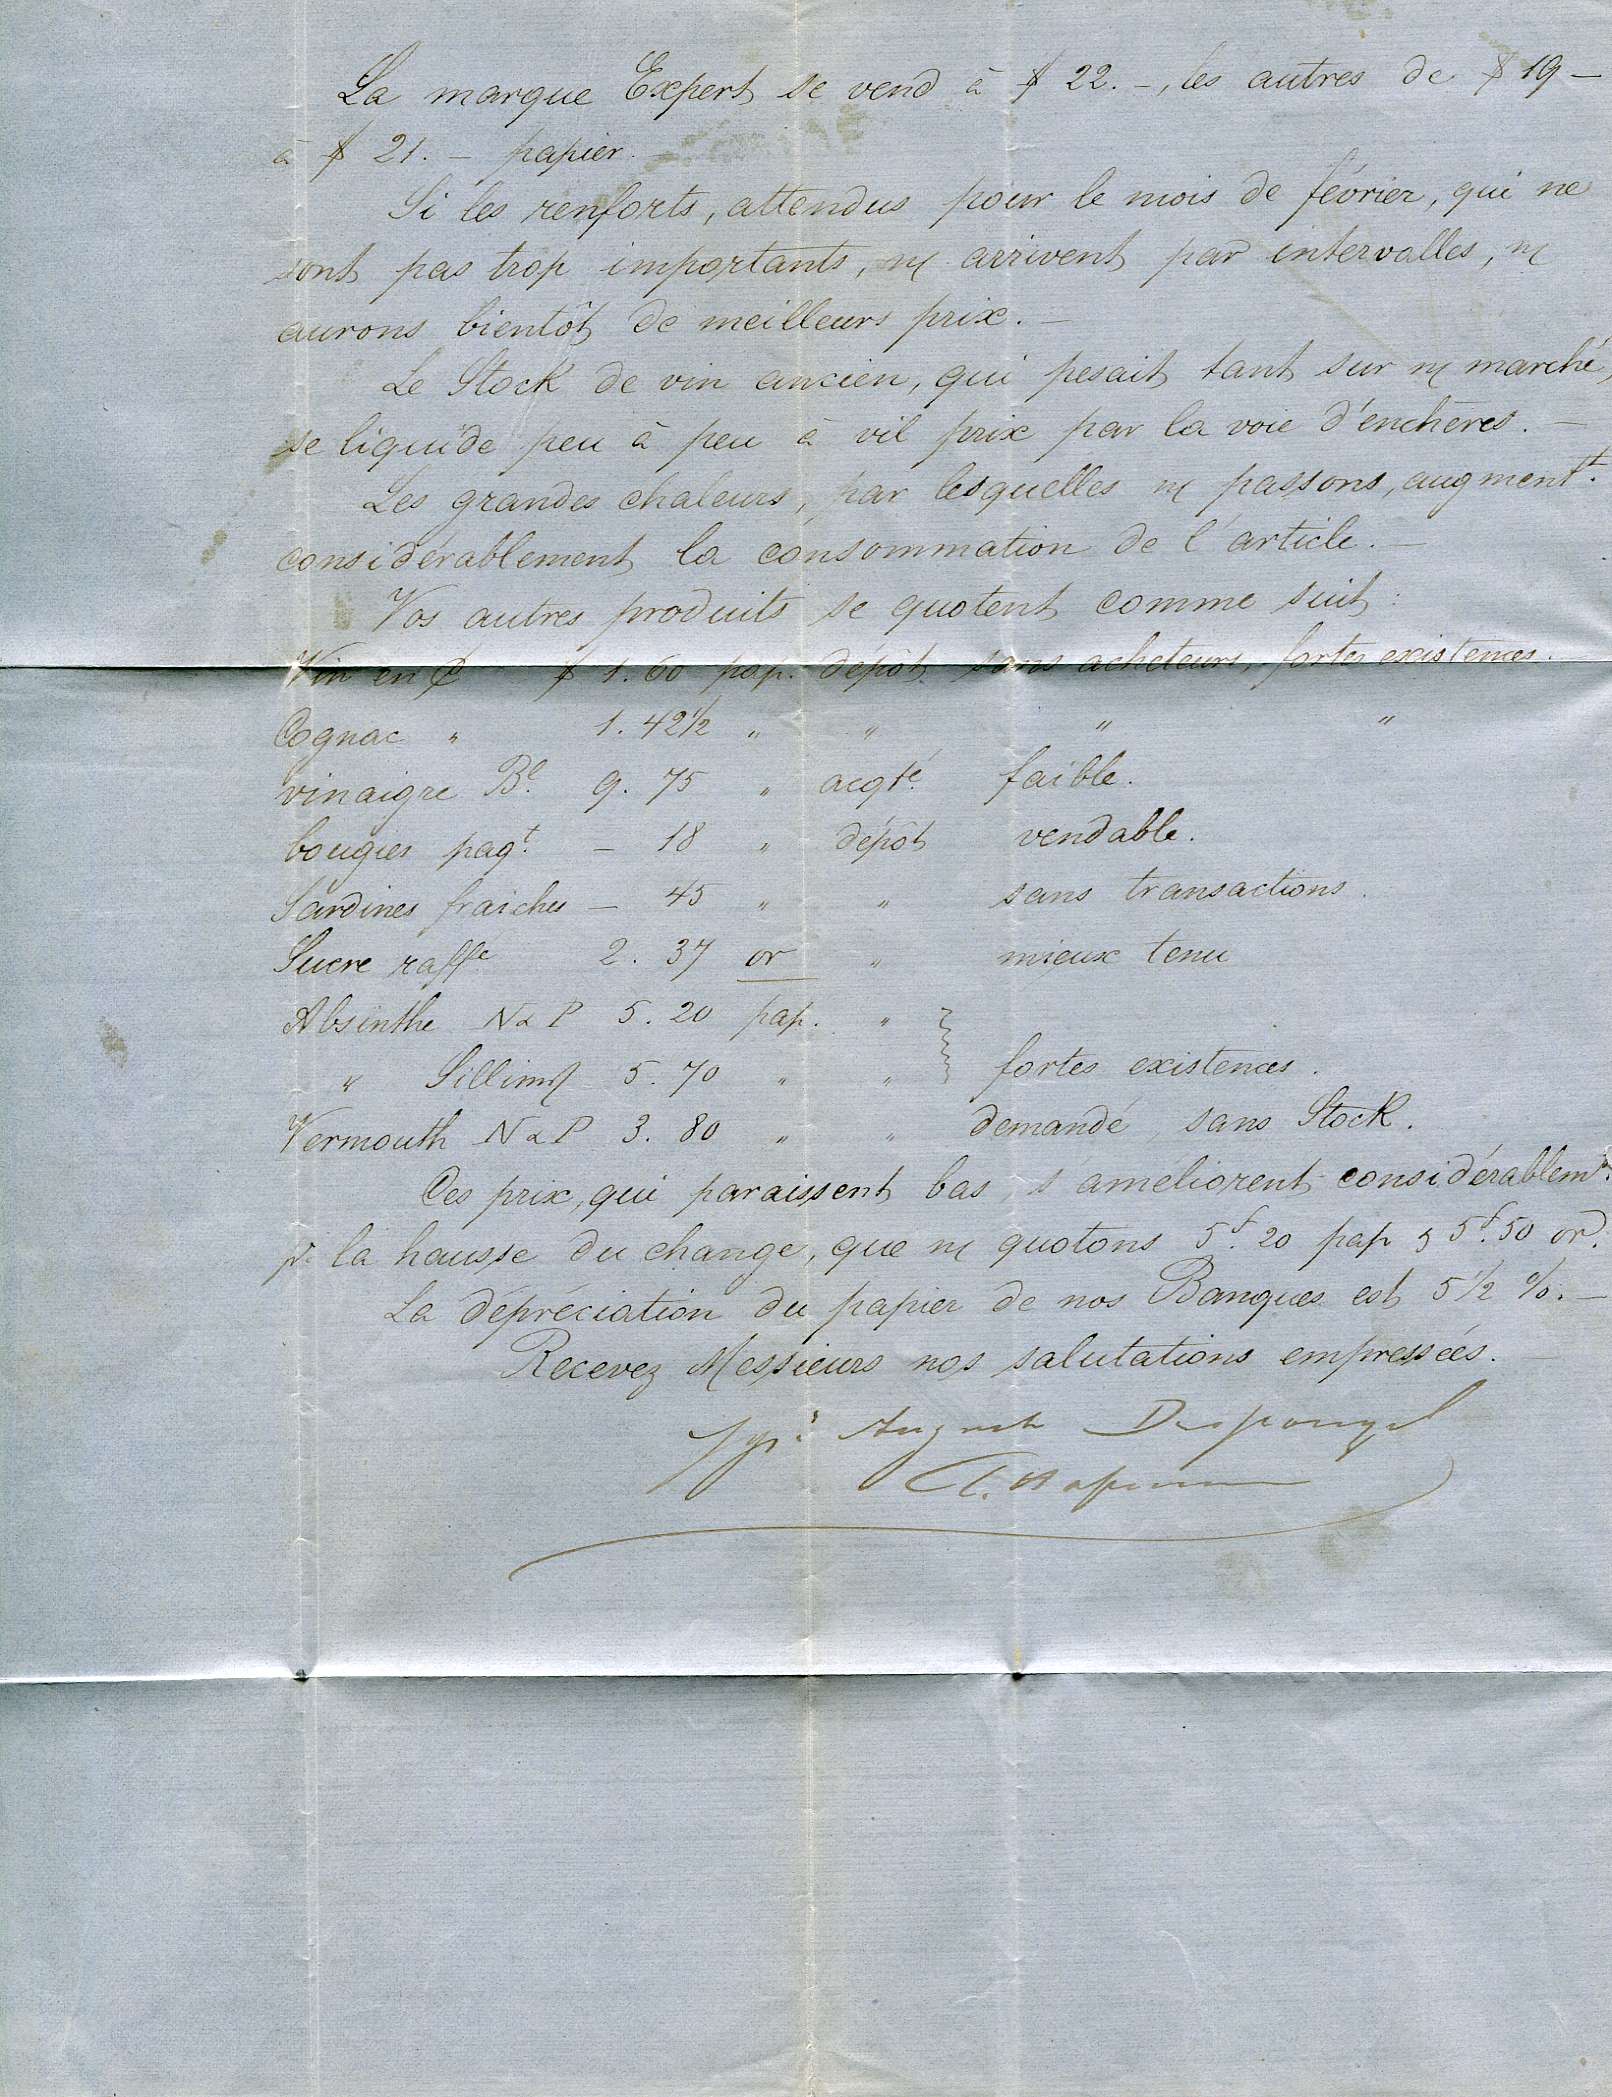 La marque Expert se vend à $ 22. –, les autres de $ 19 –
à $ 21. – papier. –
Si les renforts, attendus pour le mois de février, qui ne
sont pas trop importants, n/ arrivent par intervalles, n/
aurons bientôt de meilleurs prix. –
Le Stock de vin ancien, qui pesait tant sur n/ marché,
se liquide peu à peu à vil prix par la voie d'enchères. –
Les grandes chaleurs, par lesquelles n/ passons, augmentt.
considérablement la consommation de l'article. –
Vos autres produits se quotent comme suit:
Vin en $ 1.60 pap. dépôt sans acheteurs, fortes existences.
Cognac " 1.42½ " " " "
vinaigre Bl. 9.75 " acqté. faible.
bougies paqt. – 18 " dépôt vendable.
Sardines fraiches – 45 " " sans transactions.
Sucre raffé 2.37 or " mieux tenu
Absinthe N & P 5.20 pap. "
" 5.70 " " fortes existences.
Vermouth N & P 3.80 " " demandé, sans Stock.
Ces prix, qui paraissent bas, s'améliorent considérablemt.
pr. la hausse du change, que n/ quotons 5f.20 pap & 5f.50 or.
La dépréciation du papier de nos Banques est 5½ %. –
Recevez Messieurs nos salutations empressées.